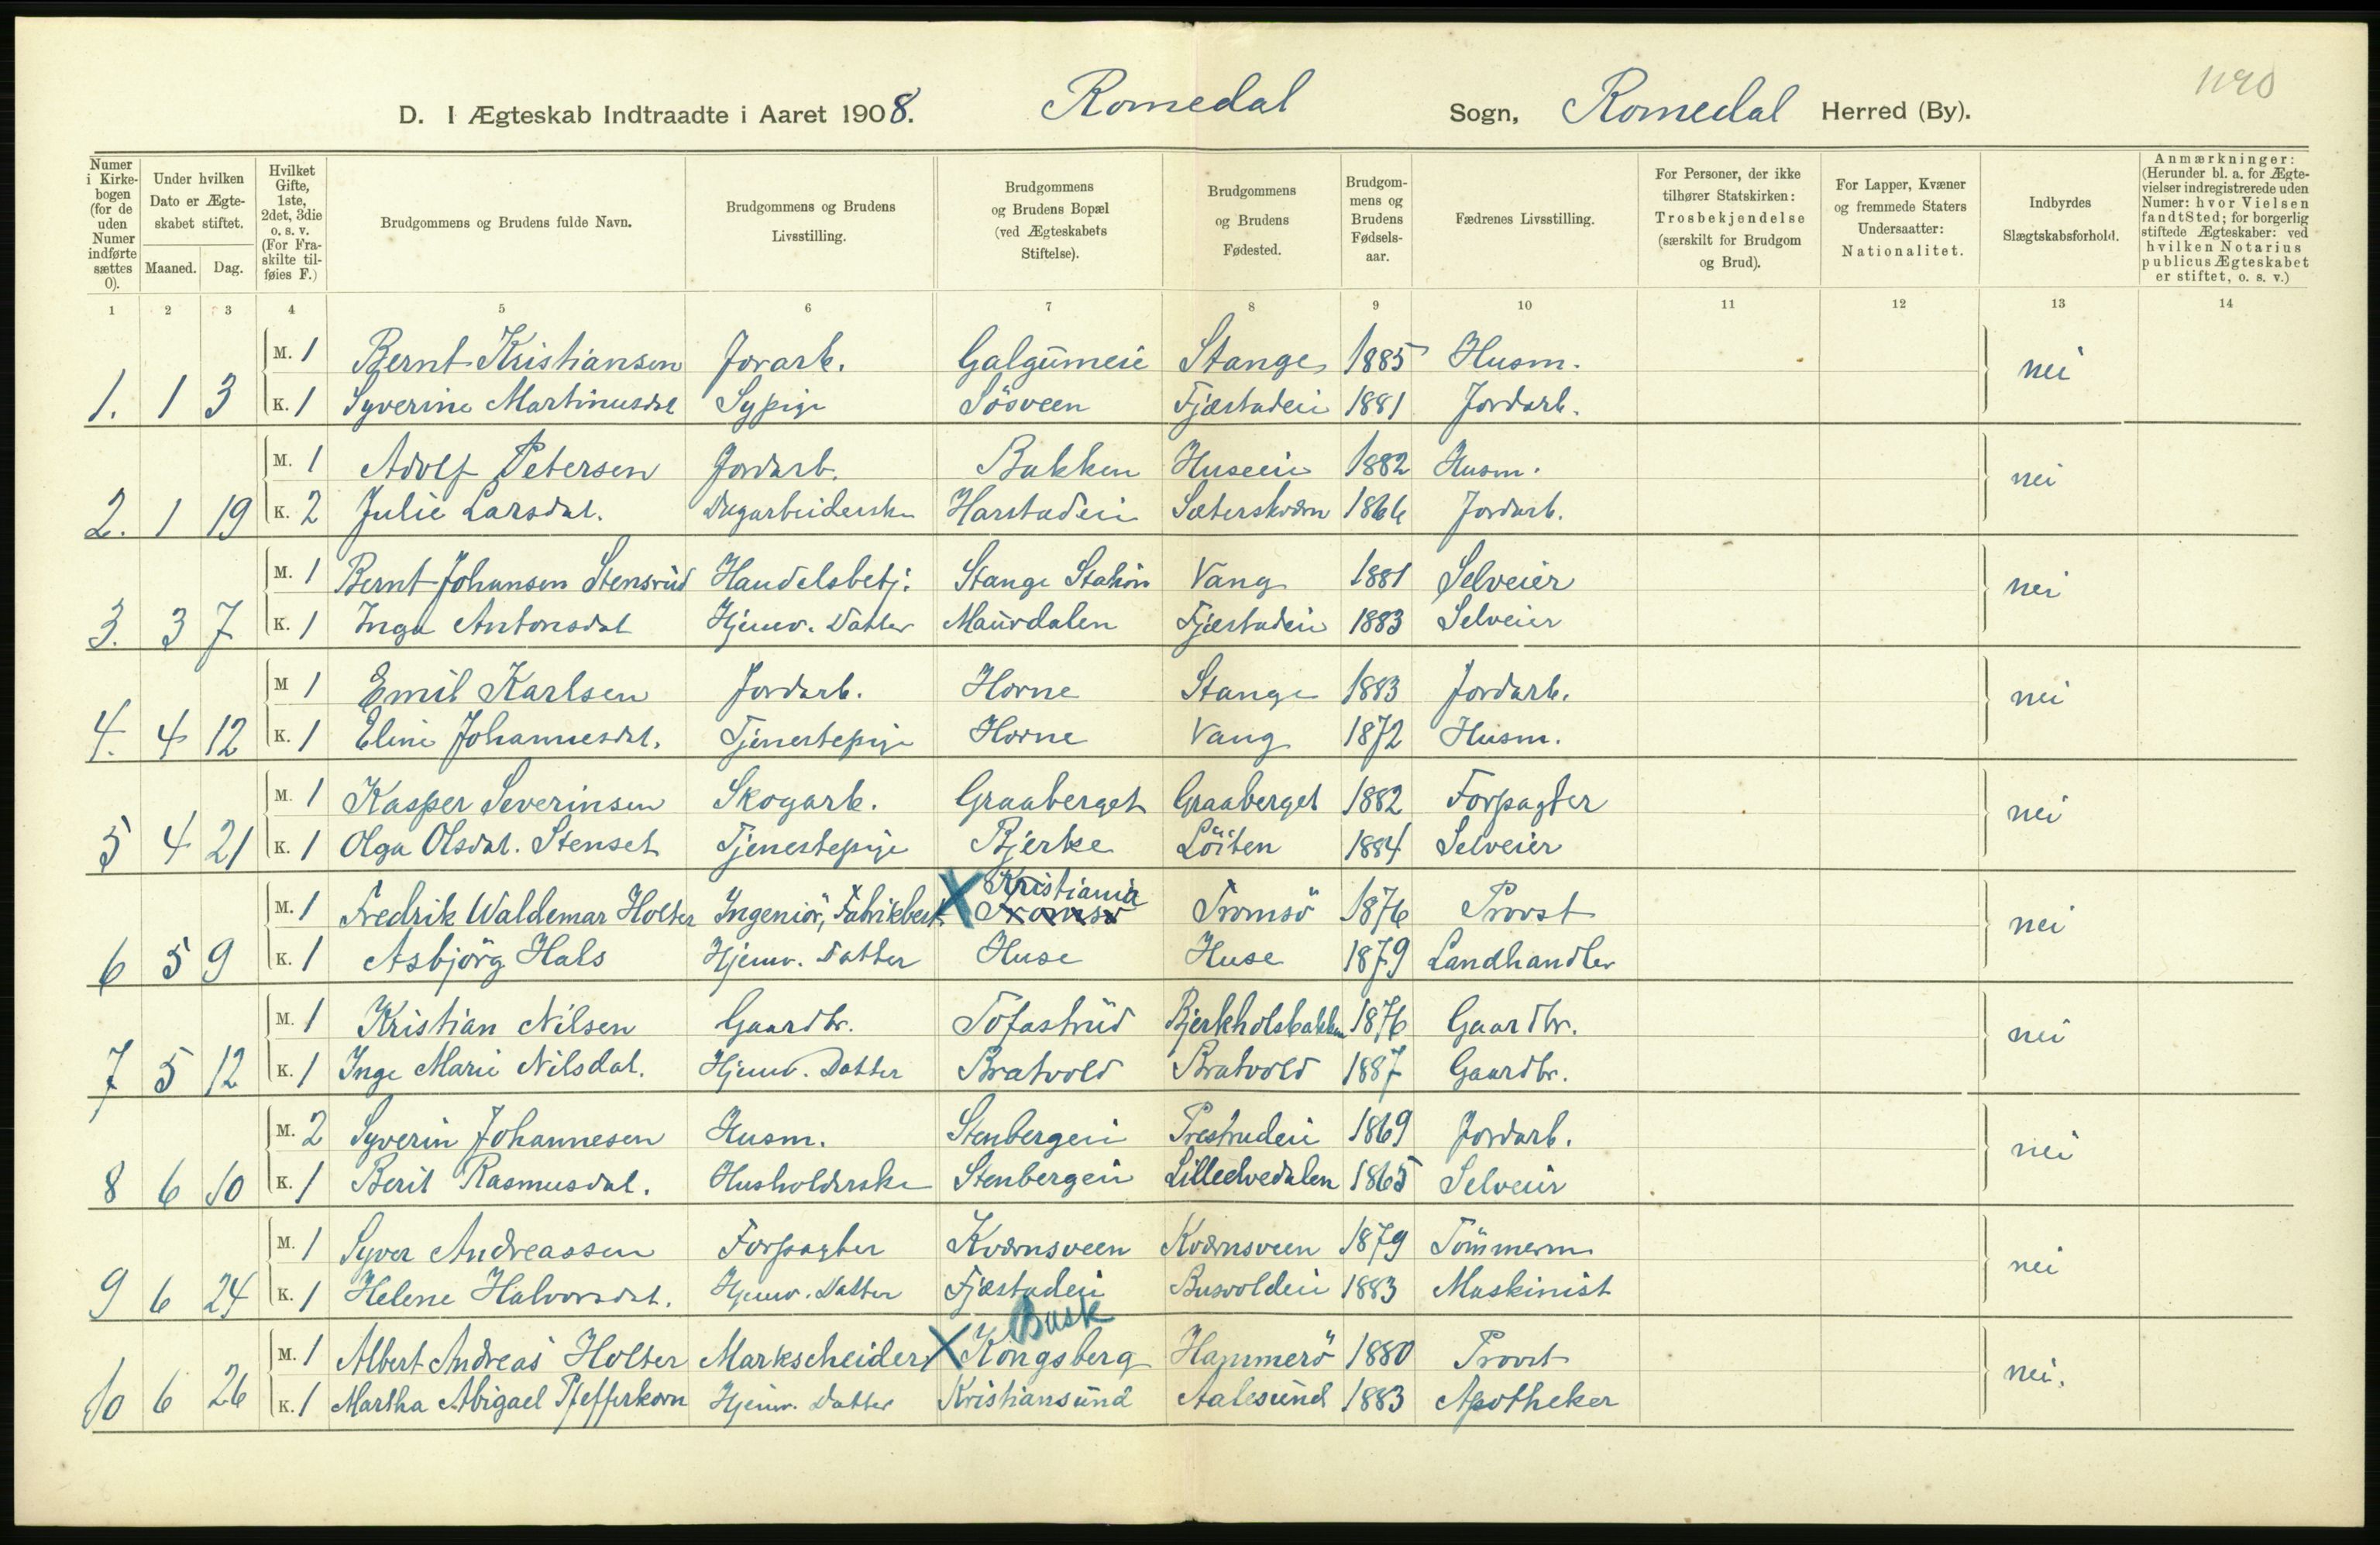 1120
D. I Ægteskab Indtraadte i Aaret 1908. Romedal Sogn, Romedal Herred (By).
Numer i Kirkebogen (for de uden Numer indførte sættes 0). Under hvilken Dato er Ægteskabet stiftet. Maaned. Dag. Hvilket Gifte, 1ste, 2det, 3die o. s. v. (For Fraskilte tilføies F.) Brudgommens og Brudens fulde Navn. Brudgommens og Brudens Livsstilling. Brudgommens og Brudens Bopæl (ved Ægteskabets Stiftelse). Brudgommens og Brudens Fødested. Brudgommens og Brudens Fødselsaar. Fædrenes Livsstilling. For Personer, der ikke tilhører Statskirken: Trosbekjendelse (særskilt for Brudgom og Brud). For Lapper, Kvæner og fremmede Staters Undersaatter: Nationalitet. Indbyrdes Slægtskabsforhold. Anmærkninger: (Herunder bl. a. for Ægtevielser indregistrerede uden Numer: hvor Vielsen fandt Sted; for borgerlig stiftede Ægteskaber: ved hvilken Notarius publicus Ægteskabet er stiftet, o. s. v.)
1 2 3 4 5 6 7 8 9 10 11 12 13 14
M. 1 Bernt Kristiansen Jorarb. Galgumeie Stange 1885 Husm. nei
1. 1 3 K. 1 Syverine Martinusdat Sypige Sösveen Fjæstadeie 1881 Jordarb.
M. 1 Adolf Petersen Jordarb. Bakken Huseeie 1882 Husm. nei
2. 1 19 K. 2 Julie Larsdat. Dagarbeiderske Harstadeie Sæterskværn 1866 Jordarb.
M. 1 Bernt Johansen Stensrud Handelsbetj. Stange Station Vang 1881 Selveier nei
3. 3 7 K. 1 Inga Antonsdat Hjemv. Datter Maurdalen Fjæstadeie 1883 Selveier
M 1 Emil Karlsen Jordarb. Horne Stange 1883 Jordarb. nei
4. 4 12 K. 1 Eline Johannesdat. Tjenestepige Horne Vang 1872 Husm.
M. 1 Kasper Severinsen Skogarb. Graaberget Graaberget 1882 Forpagter nei
5 4 21 K. 1 Olga Olsdat. Stenset Tjenestepige Bjerke Löiten 1884 Selveier
M. 1 Fredrik Waldemar Holter Ingeniör, Fabrikbest. X Kristiania Tromsö Tromsö 1876 Provst nei
6 5 9 K. 1 Asbjörg Hals Hjemv. Datter Huse Huse 1879 Landhandler
M. 1 Kristian Nilsen Gaardbr. Tofastrud Bjerkholsbakken 1876 Gaardbr. nei
7 5 12 K. 1 Inge Marie Nilsdat. Hjemv. Datter Bratvold Bratvold 1887 Gaardbr.
M. 2 Syverin Johannesen Husm. Stenbergeie Prestrudeie 1869 Jordarb. nei
8 6 10 K. 1 Berit Rasmusdat. Husholderske Stenbergeie Lilledvedalen 1865 Selveier
M. 1 Syver Andreassen Forpagter Kværnsveen Kværnsveen 1879 Tömmerm. nei
9 6 24 K. 1 Helene Halvorsdat. Hjemv. Datter Fjæstadeie Busvoldeie 1883 Maskinist
Busk
M. 1 Albert Andreas Holter Markscheider X Kongsberg Hammerö 1880 Provst nei.
10 6 26 K. 1 Martha Abigael Pfefferkorn Hjemv. Datter Kristiansund Aalesund 1883 Apotheker